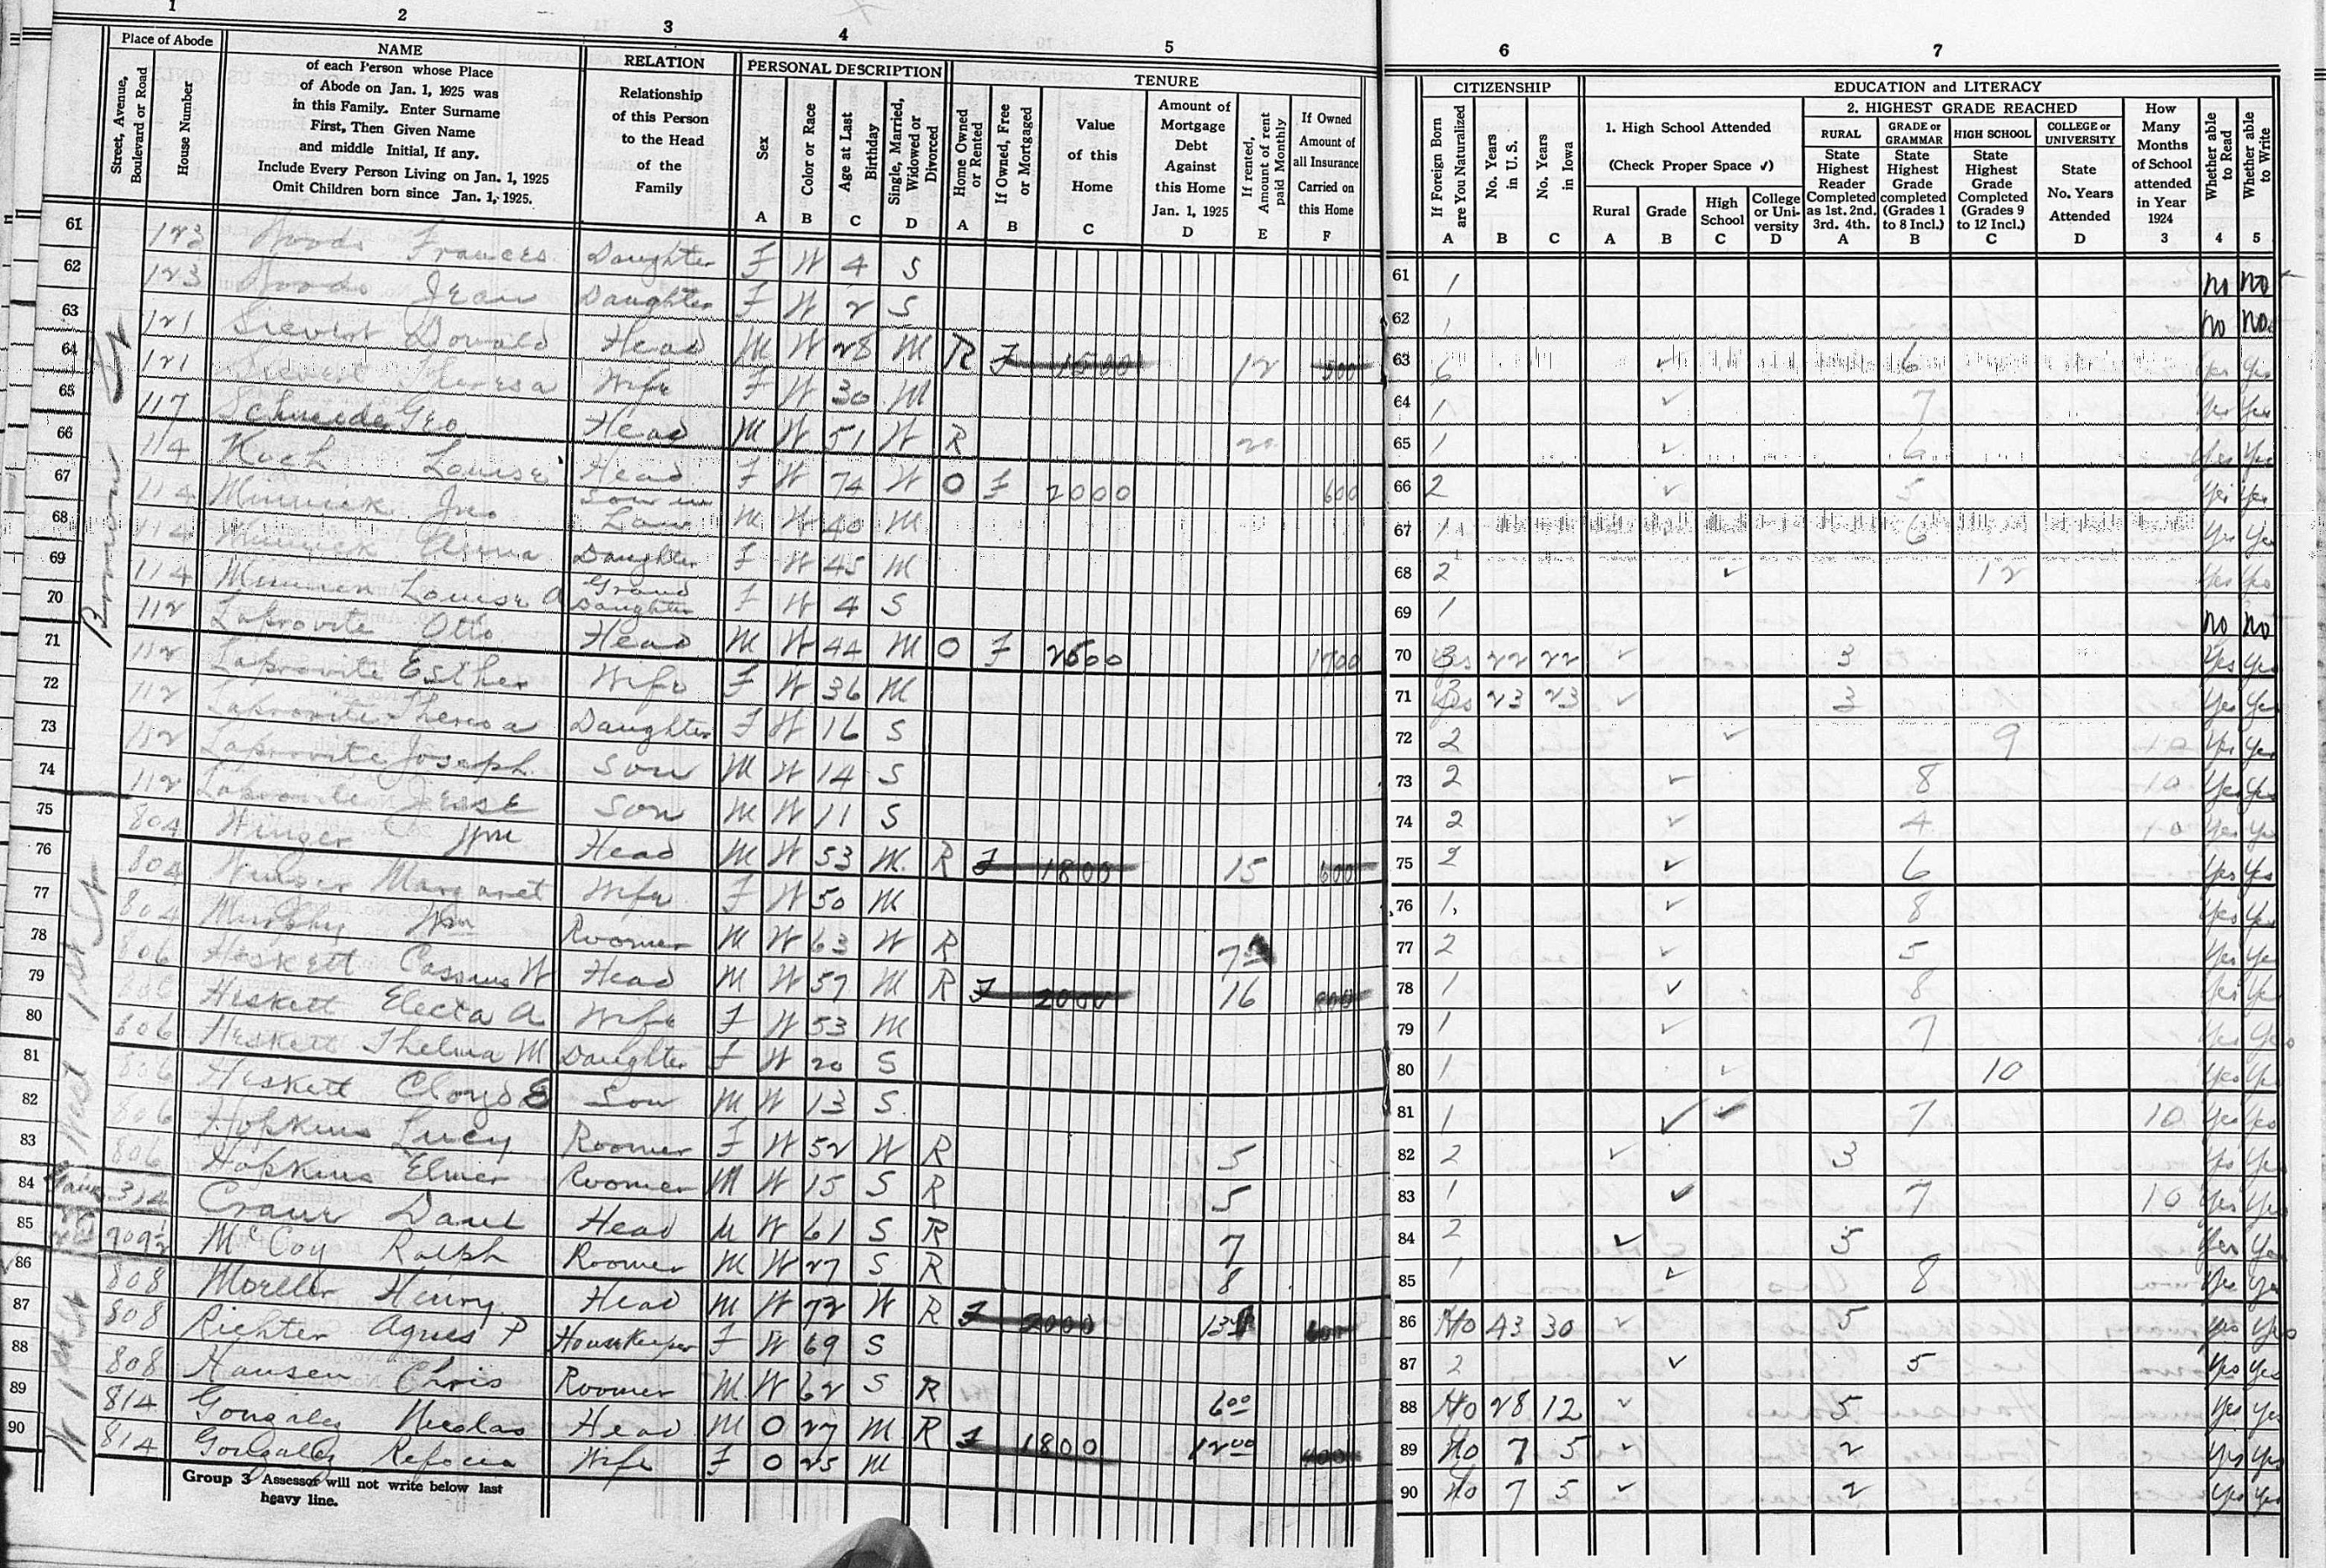 1 2 3 4 5 6 7
Place of Abode
Street, Avenue, Boulevard or Road
House Number
NAME
of each Person whose Place
of Abode on Jan. 1, 1925 was
in this Family. Enter Surname
First, Then Given Name
and middle Initial, If any.
Include Every Person Living on Jan. 1, 1925
Omit Children born since Jan. 1, 1925.
RELATION
Relationship
of this Person
to the Head
of the
Family
PERSONAL DESCRIPTION
Sex A
Color or Race B
Age at Last Birthday C
Single, Married, Widowed or Divorced D
TENURE
Home Owned or Rented A
If Owned, Free or Mortgaged B
Value of this Home C
Amount of Mortgage Debt Against this Home Jan. 1, 1925 D
If rented, Amount of rent paid Monthly E
If Owned Amount of all Insurance Carried on this Home F
CITIZENSHIP
If Foreign Born are You Naturalized A
No. Years in U.S. B
No. Years in Iowa C
EDUCATION AND LITERACY
1. High School Attended
(Check Proper Space ✓)
Rural A
Grade B
High School C
College or University D
2. HIGHEST GRADE REACHED
RURAL State Highest Reader Completed as 1st. 2nd. 3rd. 4th. A
GRADE or GRAMMAR State Highest Grade completed (Grades 1 to 8 Incl.) B
HIGH SCHOOL State Highest Grade Completed (Grades 9 to 12 Incl.) C
COLLEGE or UNIVERSITY State No. Years Attended D
How Many Months of School attended in Year 1924 3
Whether able to Read 4
Whether able to Write 5
61 123 Woods Frances Daughter F W 4 S 61 1 no no
62 123 Woods Jean Daughter F W 2 S 62 1 no no
63 121 Sievert Donald Head M W 28 M R F 1500 12 500 63 ✓ 6 Yes Yes
64 121 Sievert Theresa Wife F W 30 M 64 1 ✓ 7 Yes Yes
65 117 Schneider Geo Head M W 51 W R 20 65 1 ✓ 6 Yes Yes
66 114 Koch Louise Head F W 74 W O F 2000 600 66 2 ✓ 5 Yes Yes
67 114 Jno Son in Law M W 40 M 67 1 6 Yes Yes
68 114 Daughter F W 45 M 68 2 ✓ 12 Yes Yes
69 114 Louise A Grand Daughter F W 4 S 69 1 no no
70 112 Laprovite Otto Head M W 44 M O F 2600 1700 70 Yes 22 22 ✓ 3 Yes Yes
71 112 Laprovite Esther Wife F W 36 M 71 Yes 23 23 ✓ 3 Yes Yes
72 112 Laprovite Theresa Daughter F W 16 S 72 2 ✓ 9 10 Yes Yes
73 112 Laprovite Joseph Son M W 14 S 73 2 ✓ 8 10 Yes Yes
74 112 Laprovite Jesse Son M W 11 S 74 2 ✓ 4 10 Yes Yes
75 804 Winger Wm Head M W 53 M R F 1800 15 600 75 2 ✓ 6 Yes Yes
76 804 Winger Margaret Wife F W 50 M 76 1 ✓ 8 Yes Yes
77 804 Murphy Wm Roomer M W 63 W R 7 77 2 ✓ 5 Yes Yes
78 806 Heskett Cassius W Head M W 57 M R F 2000 16 800 78 1 ✓ 8 Yes Yes
79 806 Heskett Electa A Wife F W 53 M 79 1 ✓ 7 Yes Yes
80 806 Heskett Thelma M Daughter F W 20 S 80 1 ✓ 10 Yes Yes
81 806 Heskett Cloyd E Son M W 13 S 81 1 ✓ ✓ 7 10 Yes Yes
82 806 Hopkins Lucy Roomer F W 52 W R 5 82 2 ✓ 3 Yes Yes
83 806 Hopkins Elmer Roomer M W 15 S R 5 83 1 ✓ 7 10 Yes Yes
84 314 Daniel Head M W 61 S R 7 84 2 ✓ 5 Yes Yes
85 909½ McCoy Ralph Roomer M W 27 S R 8 85 1 ✓ 8 Yes Yes
86 808 Moreller Henry Head M W 72 W R F 2000 13 600 86 No 43 30 ✓ 5 Yes Yes
87 808 Richter Agnes P Housekeeper F W 69 S 87 2 ✓ 5 Yes Yes
88 808 Hansen Chris Roomer M W 62 S R 6 00 88 No 28 12 ✓ 5 Yes Yes
89 814 Gonzales Nicolas Head M O 27 M R F 1800 12 00 400 89 No 7 5 ✓ 2 Yes Yes
90 814 Gonzales Wife F O 25 M 90 No 7 5 ✓ 2 Yes Yes
West 1st St
W 1st St
Group 3 Assessor will not write below last
heavy line.